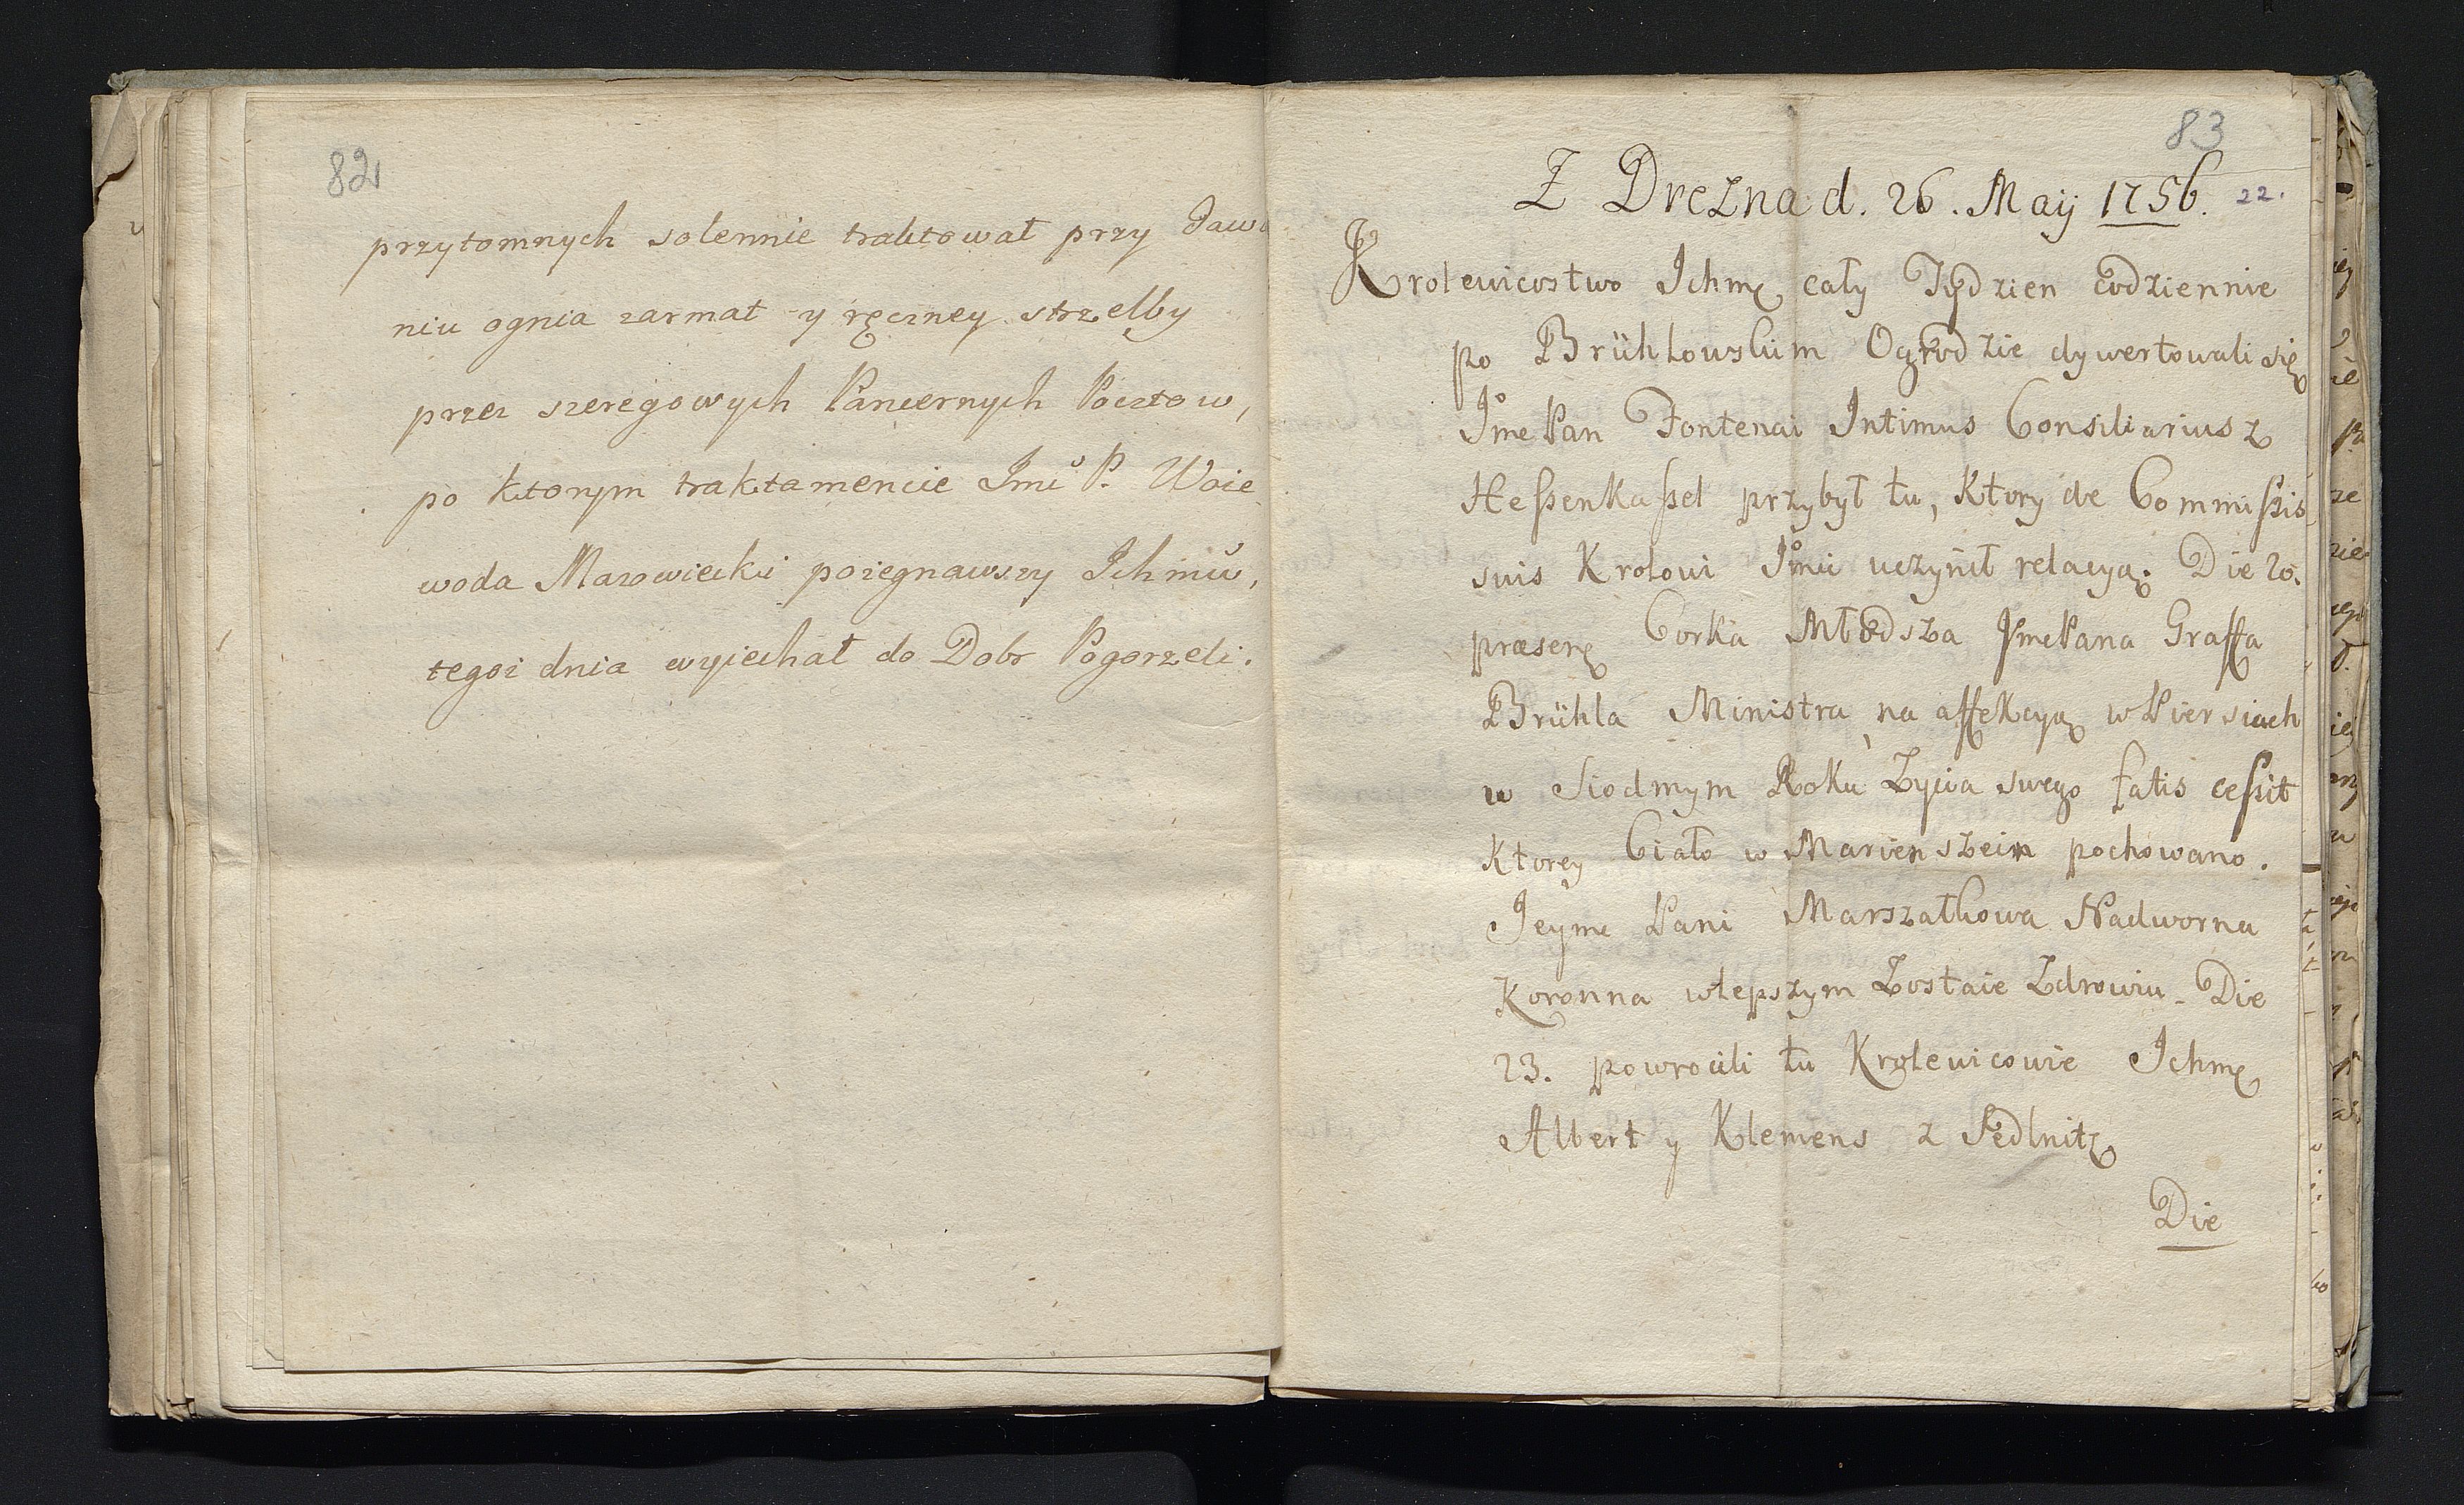 82
przytomnych solennie traktował przy Dawa
niu ognia zarmat y ręczney strzelby
przez szeregowych Pancernych Pocztow,
po ktorym traktamencie Jmć P. Woie
woda Mazowiecki pożegnawszy Ichmćiu,
tegoż dnia wyiechał do Dobr Pogorzeli.
83
Z Drezna d. 26. Maij 1756. 22.
Krolewicostwo Ichmę cały Tydzien Codziennie
po Brühlowskim Ogrodzie dywertowali się
Jme Pan Fontenai Intimus Consiliarius z
Heßenkaßel przybył tu, Ktory de Commißis
suis Krolowi Jmci uczynił relacyą. Die 20.
præsenę Corka Młodsza JmePana Graffa
Brühla Ministra na affekcyą w Piersiach
w Siodmym Roku Zycia swego fatis ceßit
Ktorey Ciało w Marienszein pochowano.
Jeyme Pani Marszałkowa Nadworna
Koronna wlepszym Zostaie Zdrowiu. Die
23. powrocili tu Krolewicowie Ichmę
Albert y Klemens z Sedlnitz
Die